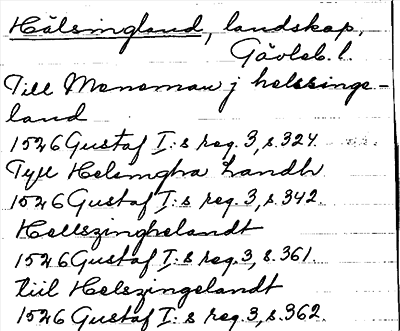 Hälsingland, landskap,
Gävleb. l.
Till Meneman j helssinge-
land
1526 Gustaf I:s reg. 3, s. 324.
Tyll Helsingha Landh
1526 Gustaf I:s reg. 3, s. 342.
Hellszinghelandt
1526 Gustaf I:s reg. 3, s. 361.
tiil Helszingelandt
1526 Gustaf I:s reg. 3, s. 362.